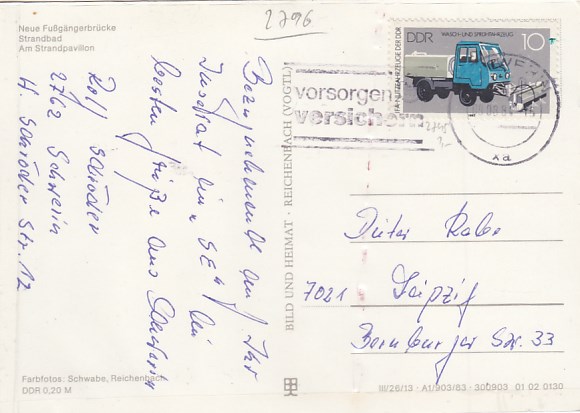 Neue Fußgängerbrücke
Strandbad
Am Strandpavillon
2796
Bezugnehmende an Ihr
Inserat in "SE" die
besten Grüße aus Schwerin
Rolf Schröder
2762 Schwerin
H. Schröder Str. 12
Farbfotos: Schwabe, Reichenbach
DDR 0,20 M
BILD UND HEIMAT · REICHENBACH (VOGTL)
WASCH- UND SPRÜHFAHRZEUG
DDR
10
NUTZFAHRZEUGE DER DDR
vorsorgen
versichern
xa
Dieter Rabe
7021 Leipzig
Bernburger Str. 33
III/26/13 · A1/903/83 · 300903 01 02 0130